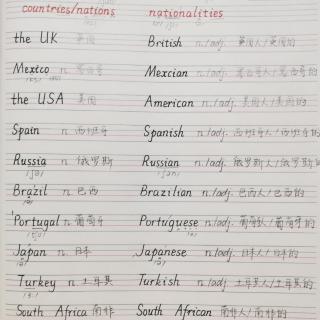 countries/nations nationalities
the UK 英国 British n./adj. 英国人/英国的
Mexico n. 墨西哥 Mexcian n./adj. 墨西哥人/墨西哥的
the USA 美国 American n./adj. 美国人/美国的
Spain n. 西班牙 Spanish n./adj. 西班牙人/西班牙的
Russia n. 俄罗斯 Russian n./adj. 俄罗斯人/俄罗斯的
Brazil n. 巴西 Brazilian n./adj. 巴西人/巴西的
Portugal n. 葡萄牙 Portuguese n./adj. 葡萄牙人/葡萄牙的
Japan n. 日本 Japanese n./adj. 日本人/日本的
Turkey n. 土耳其 Turkish n./adj. 土耳其人/土耳其的
South Africa 南非 South African 南非人/南非的